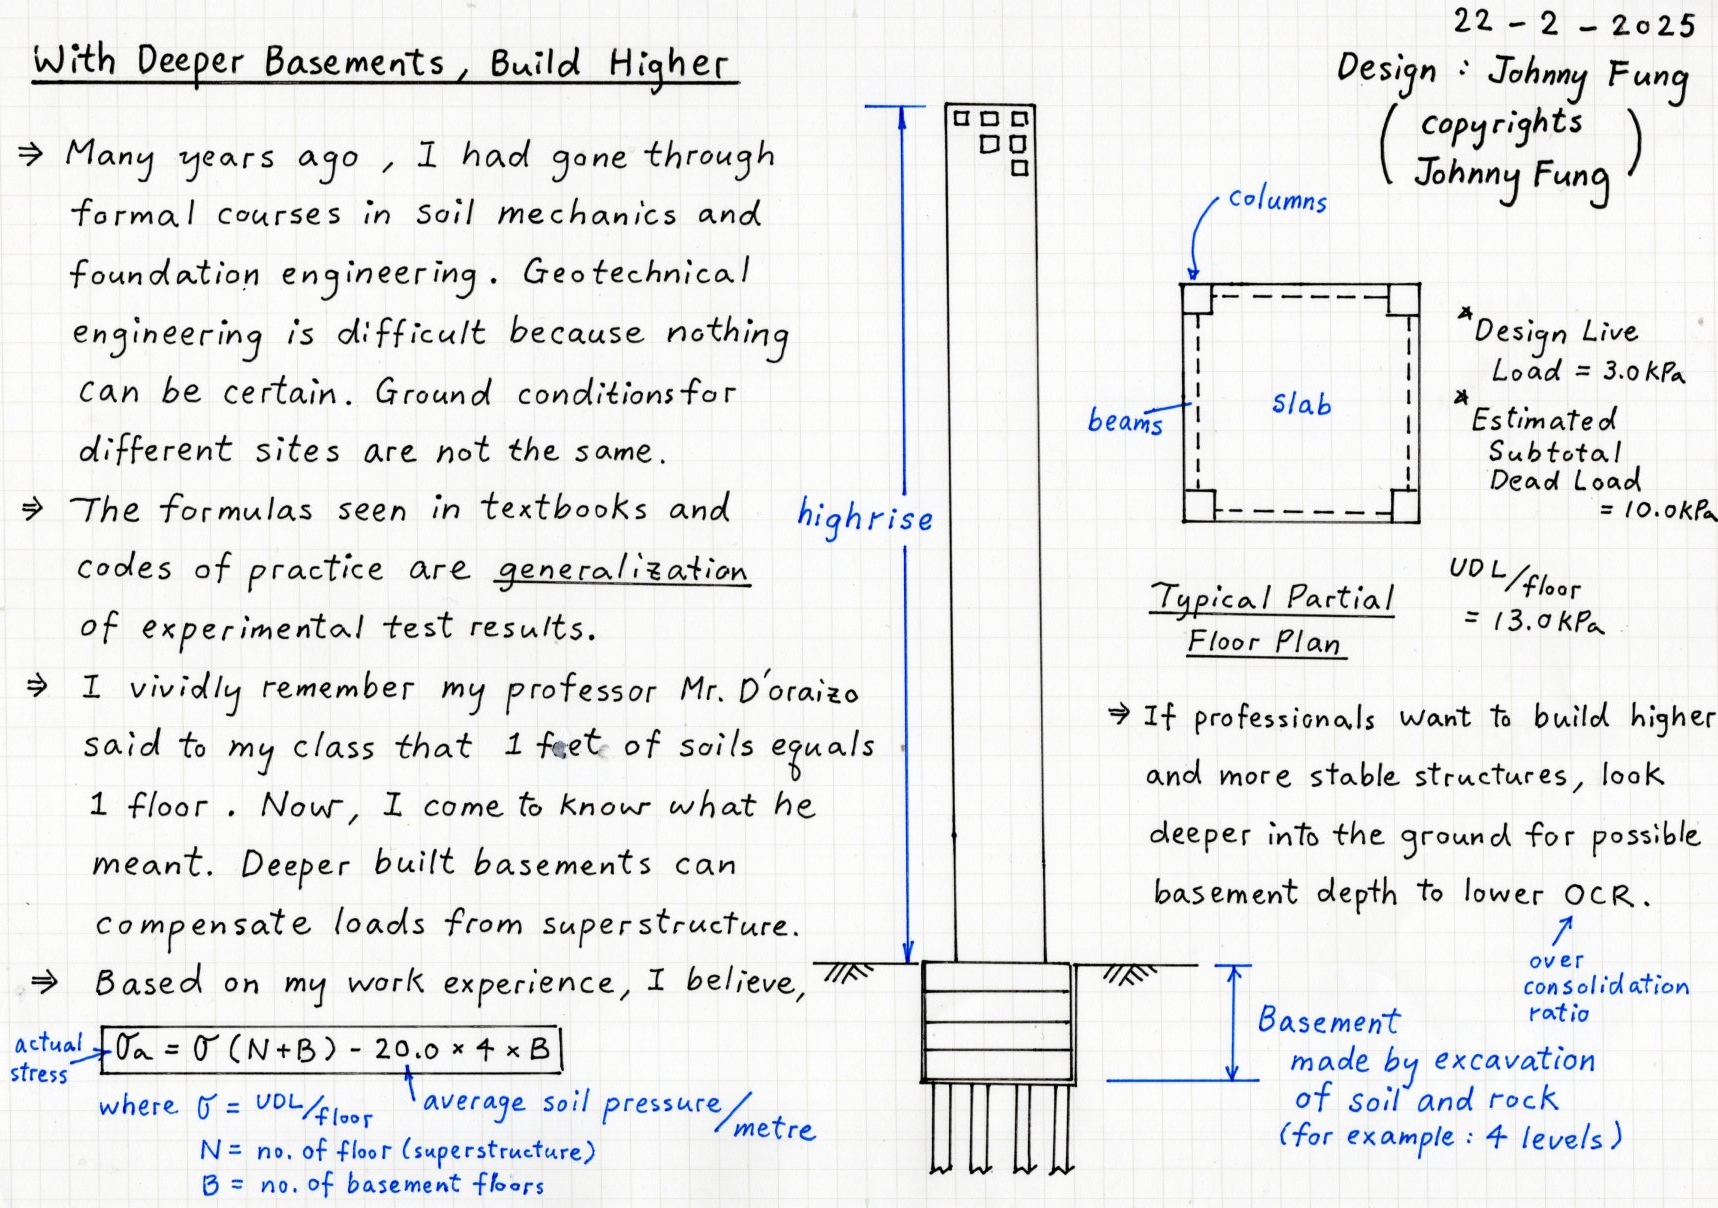 22 - 2 - 2025
With Deeper Basements, Build Higher
Design : Johnny Fung
( copyrights
Johnny Fung )
⇒ Many years ago , I had gone through
formal courses in soil mechanics and
foundation engineering. Geotechnical
engineering is difficult because nothing
can be certain. Ground conditions for
different sites are not the same.
⇒ The formulas seen in textbooks and
codes of practice are generalization
of experimental test results.
⇒ I vividly remember my professor Mr. D'oraizo
said to my class that 1 feet of soils equals
1 floor . Now, I come to know what he
meant. Deeper built basements can
compensate loads from superstructure.
⇒ Based on my work experience, I believe,
actual
stress
σa = σ (N+B) - 20.0 × 4 × B
where σ = UDL/floor
average soil pressure/metre
N = no. of floor (superstructure)
B = no. of basement floors
highrise
columns
beams
slab
* Design Live
Load = 3.0 kPa
* Estimated
Subtotal
Dead Load
= 10.0 kPa
UDL/floor
= 13.0 kPa
Typical Partial
Floor Plan
⇒ If professionals want to build higher
and more stable structures, look
deeper into the ground for possible
basement depth to lower OCR.
over
consolidation
ratio
Basement
made by excavation
of soil and rock
(for example : 4 levels)